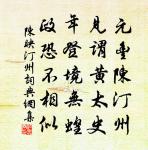 元豐陳汀州
見謂黃太史
年登境無蝗
政恐不相似
陳映汀州詞典網集